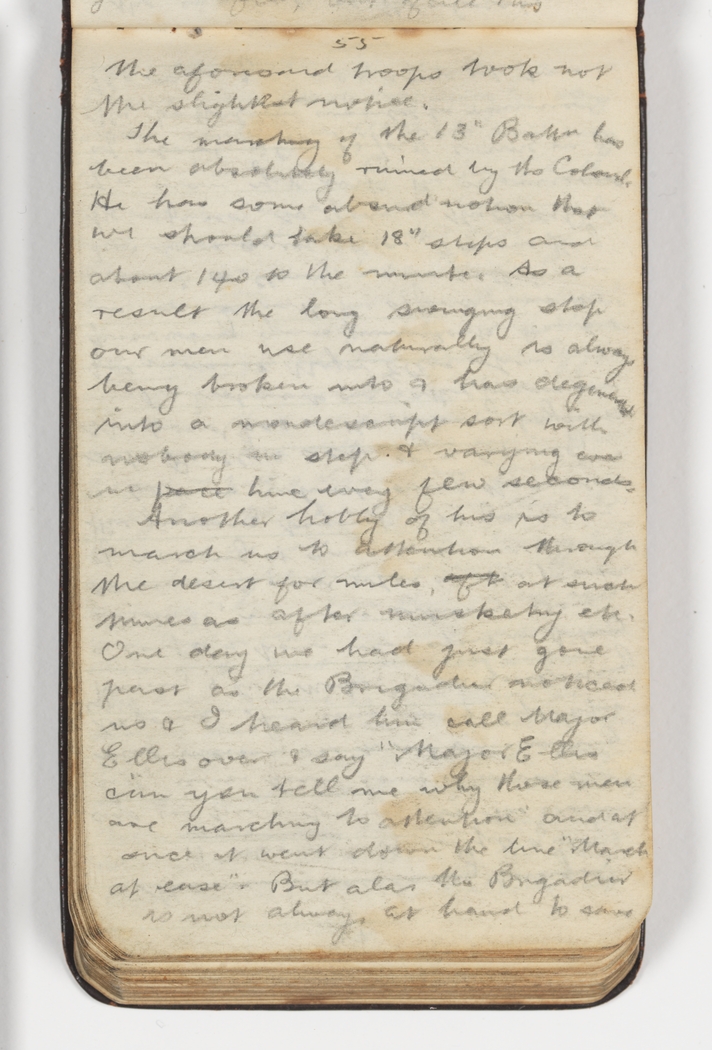 55
the aforesaid troops took not
the slightest notice.
The marching of the 13" Battn has
been absolutely ruined by the Colonel.
He has some absurd notion that
we should take 18" steps and
about 140 to the minute. As a
result the long swinging step
our men use naturally is always
being broken into & has degenerated
into a nondescript sort with
nobody in step. & varying
in pace time every few seconds.
Another hobby of his is to
march us to attention through
the desert for miles, aft at such
times as after musketry etc.
One day we had just gone
past as the Brigadier noticed
us & I heard him call Major
Ellis over & say "Major Ellis
can you tell me why those men
are marching to attention" and at
once it went down the line "March
at ease". But alas the Brigadier
is not always at hand to save